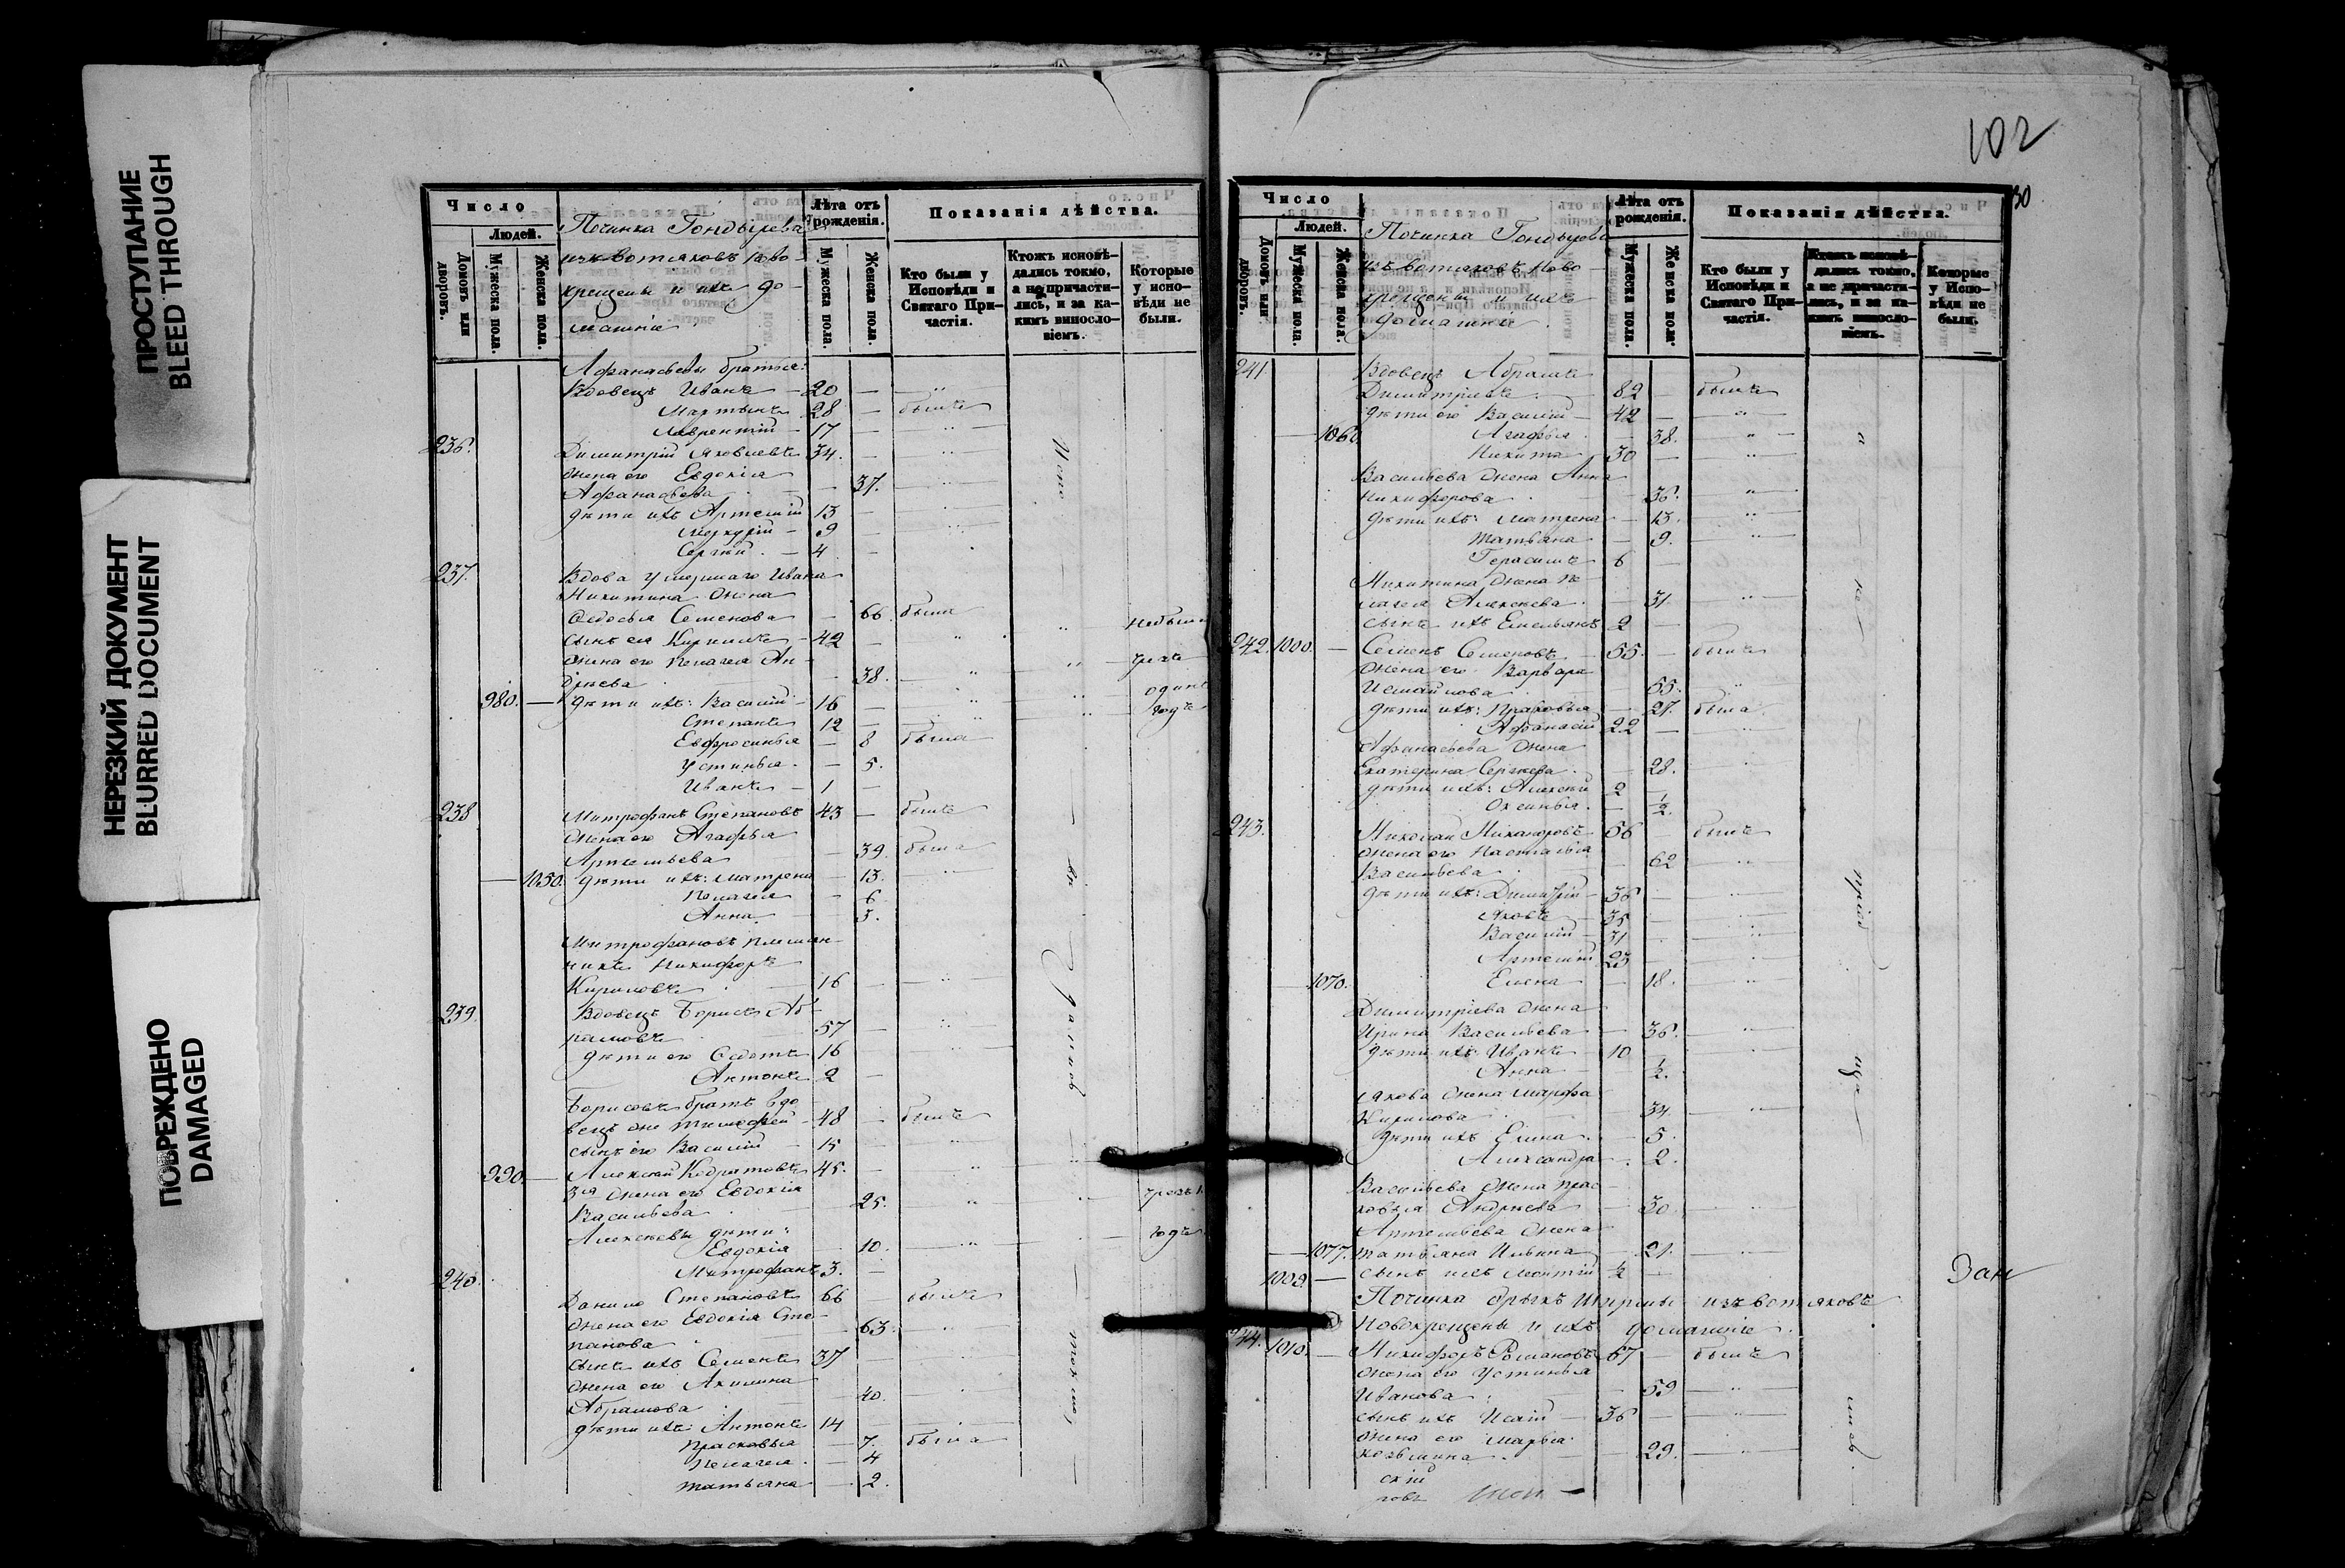 ПРОСТУПАНИЕ
BLEED THROUGH
НЕРЕЗКИЙ ДОКУМЕНТ
BLURRED DOCUMENT
ПОВРЕЖДЕНО
DAMAGED
Число
Людей.
Домовъ или дворовъ.
Мужеска пола.
Женска пола.
Починка Гондырева
изъ вотяковъ ново-
крещены и ихъ до-
машніе
Лѣта отъ рожденія.
Мужеска пола.
Женска пола.
Показанія дѣйства.
Кто были у Исповѣди и Святаго Причастія.
Ктожъ исповѣдались токмо, а не причастились, и за какимъ винословіемъ.
Которые у исповѣди не были.
Афанасьевы братья:
Вдовецъ Иванъ 20 — "
Мартынъ 28 — былъ
Лаврентій 17 — "
236. Димитрій Яковлевъ 34. — "
жена его Евдокія
Афанасьева — 37. "
дѣти ихъ Артемій 13 — "
Меркурій 9 — "
Сергѣй 4 —
237. Вдова умершаго Ивана
Никитина жена
Ѳедосья Семенова — 66. была " небыли
сынъ ея Кирилъ 42 — "
жена его Пелагея Ан-
дреева — 38. " "
980. — дѣти ихъ: Василій 16 — " " одинъ годъ
Степанъ 12 — "
Евфросинья — 8 была
Устинья — 5.
Иванъ 1 —
238 Митрофанъ Степановъ 43 — былъ
жена его Агафья
Артемьева — 39. была
— 1050. дѣти ихъ: Матрена — 13. "
Пелагея — 6
Анна — 3.
Митрофановъ племян-
никъ Никифоръ
Кириловъ 16 — "
239. Вдовецъ Борисъ Аб-
рамовъ 57 — "
дѣти его Ѳедотъ 16 "
Антонъ 2 —
Борисовъ братъ вдо
вецъ же Тимофей 48 — былъ
сынъ его Василій 15 — "
990. — Алексѣй Кодратовъ 45. — "
3я жена его Евдокія
Васильева — 25. "
Алексѣевы дѣти: годъ
Евдокія — 10. "
Митрофанъ 3. —
240. Данило Степановъ 66 — былъ
жена его Евдокія Сте-
панова — 63. "
сынъ ихъ Семенъ 37 "
жена его Акилина
Абрамова — 40. "
дѣти ихъ: Антонъ 14 — "
Прасковья — 7. была
Пелагея — 4
Татьяна — 2.
102
30
Число
Людей.
Домовъ или дворовъ.
Мужеска пола.
Женска пола.
Починка Гондырева
изъ вотяковъ ново-
крещены и ихъ
домашніе
Лѣта отъ рожденія.
Мужеска пола.
Женска пола.
Показанія дѣйства.
Кто были у Исповѣди и Святаго Причастія.
Ктожъ исповѣдались токмо, а не причастились, и за какимъ винословіемъ.
Которые у Исповѣди не были.
241 Вдовецъ Абрамъ
Димитріевъ 82 — былъ
дѣти его Василій 42 — "
— 1060 Агафья — 38. "
Никита 30 — "
Васильева жена Анна
Никифорова — 36. "
дѣти ихъ: Матрена — 13. "
Татьяна — 9. "
Герасимъ 6 —
Никитина жена Пе
лагея Алексѣева — 31. "
сынъ ихъ Емельянъ 2 —
242. 1000. — Семенъ Семеновъ 55. — былъ
жена его Варвара
Исмаилова — 55. "
дѣти ихъ: Прасковья — 27. была
Афанасій 22 — "
Афанасьева жена
Екатерина Сергѣева — 28. "
дѣти ихъ: Алексѣй 2 —
Оксинья — 1/2.
243. Николай Никаноровъ 56 — былъ
жена его Настасья
Васильева — 62 "
дѣти ихъ: Димитрій 36 — "
Яковъ 35 — "
Василій 31 — "
Артемій 23 — "
— 1070. Елена — 18. "
Димитріева жена
Ирина Васильева — 36. "
дѣти ихъ: Иванъ 10 — "
Анна — 1/2.
Якова жена Марфа
Кирилова — 34. "
дѣти ихъ Елена — 5.
Александра — 2.
Васильева жена Прас
ковья Андреева — 30 "
Артемьева жена
— 1077. Татьяна Ильина — 21. "
1009 — сынъ ихъ Леонтій 1/2 —
Зап
Починка изъ вотяковъ
новокрещены и ихъ домашніе.
244. 1010. — Никифоръ Романовъ 67 — былъ
жена его Устинья
Иванова — 59 "
сынъ ихъ Исаій 36 — "
жена его Марья
Козьмина — 29. "
скій